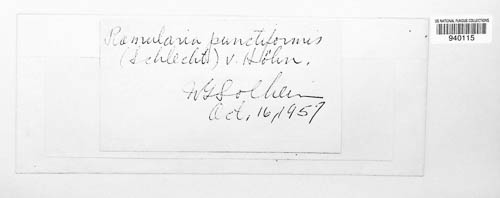 Ramularia punctiformis
(Schlecht.) v. Höhn.
WGSolheim
Oct. 16, 1957
US NATIONAL FUNGUS COLLECTIONS
940115